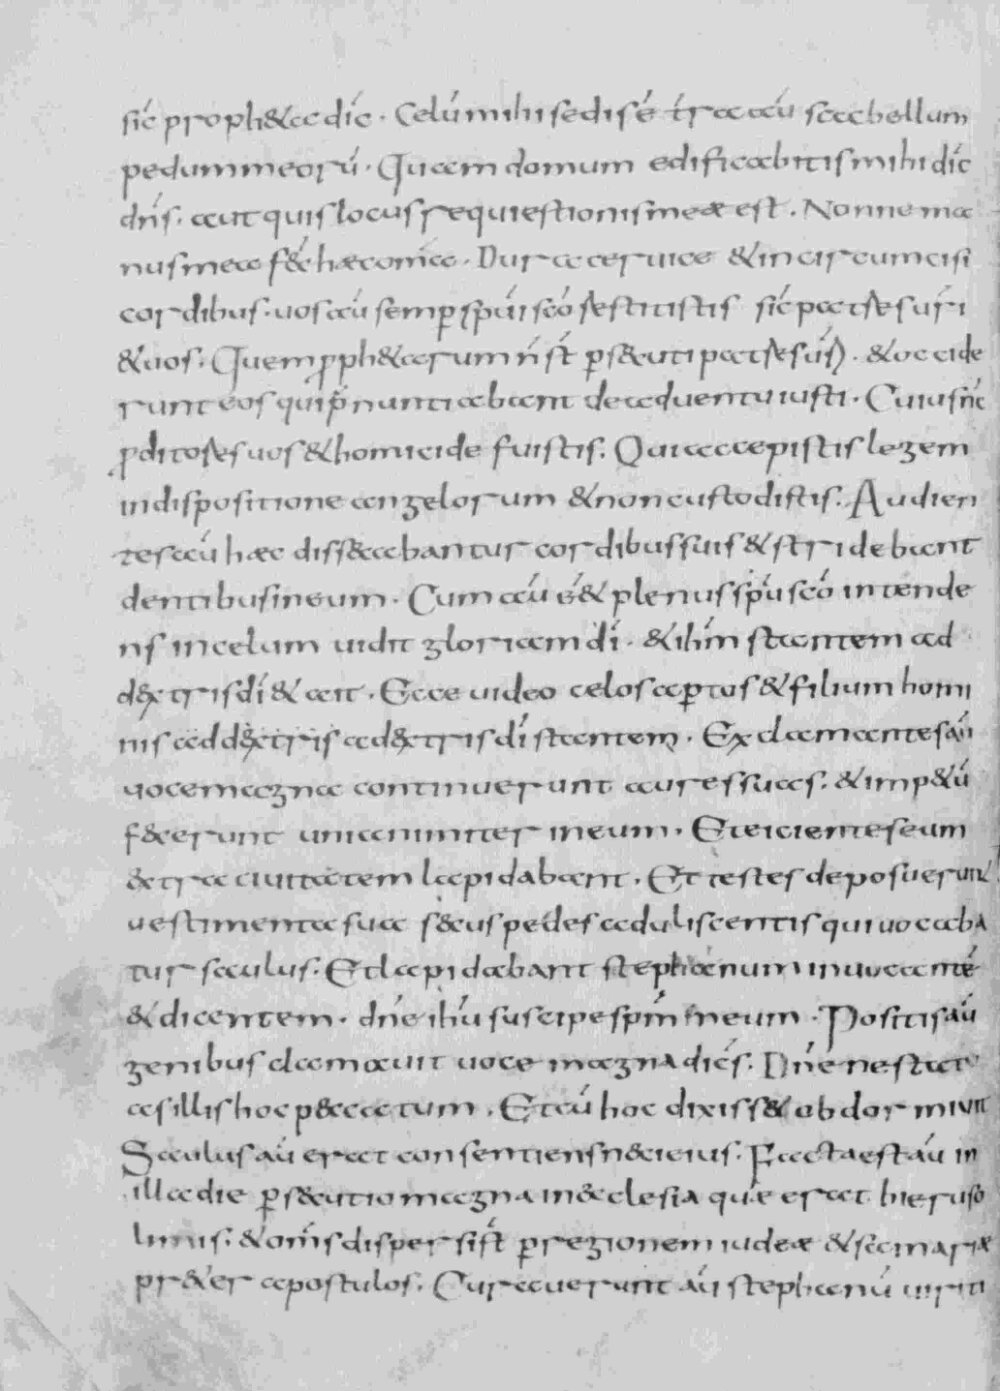 sic ph&a dic. Celū mihi sedis ē t́ra aū scabellum
pedum meorū. Quam domum edificabitis mihi dic
dn̄s. aut quis locus requiestionis meæ est. Nonne ma
nus mea f&́ hæc om̄ia. Dura ceruice &incircumcisi
cordibus. uos aū semp sp̄ui sc̄o restitistis sic patres ur̄i
&uos. Quem proph&arum n̄ st̄ ps&cuti patres ur̄i. &occide
runt eos qui p̄nuntiabant de aduentu iusti. Cuius n̄c
proditores uos &homicide fuistis. Qui accepistis legem
in dispositione angelorum &non custodistis. Audien
tes aū hæc diss&cabantur cordibus suis &stridebant
dentibus in eum. Cum aū ēs& plenus sp̄u sc̄o intende
ns in celum uidit gloriam dī. &ih̄m stantem ad
d&xtris dī &ait. Ecce video celos aptos &filium homi
nis ad d&xtris ad&xtris dī stantem. Exclamantes aū
uoce magna continuerunt aures suas. &imp&ū
f&cerunt unianimiter in eum. Et eicientes eum
&tra ciuitatem lapidabant. Et testes deposuerunt
uestimenta sua s&cus pedes aduliscentis qui uocaba
tur saulus. Et lapidabant stephanum inuocantē
&dicentem. dn̄e ih̄u suscipe sp̄m meum. Positis aū
genibus clamauit uoce magna dic̄s. Dn̄e ne statu
as illis hoc p&ccatum. Et cū hoc dixiss& obdormiuit
Saulus aū erat consentiens n&ci eius. Facta est aū in
illa die ps&cutio magna in &clesia quæ erat hieruso
limis. &om̄s dispersi st̄ p regionem iudeæ &samariæ
pr&er apostulos. Curauerunt aū stephanū uiri ti